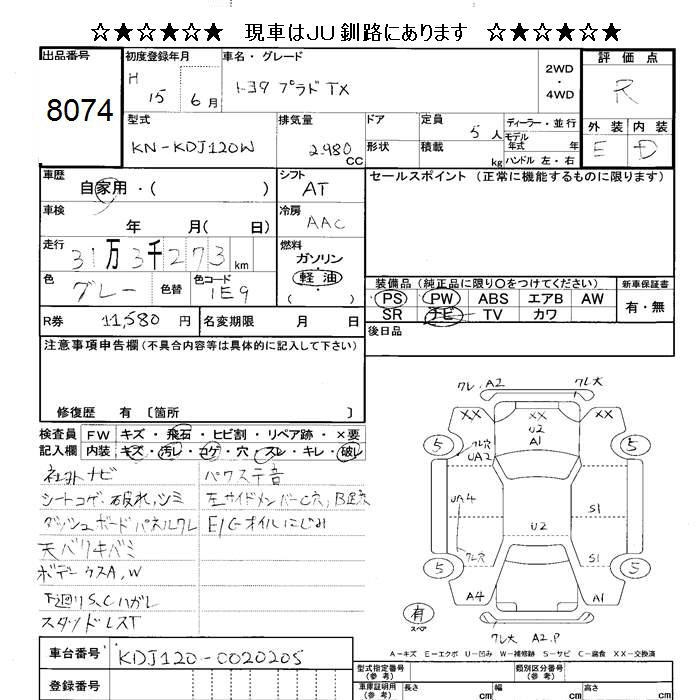 ☆★☆★☆ 現車はJU釧路にあります ☆★☆★☆
出品番号
8074
初度登録年月
H 15 6月
車名・グレード
トヨタ プラド TX
2WD
・
4WD
評価点
R
型式
KN-KDJ120W
排気量
2.980 CC
ドア
形状
定員 5人
積載 kg
ディーラー・並行
モデル
年式 年
ハンドル 左・右
外装 内装
E D
車歴
自家用・( )
シフト
AT
セールスポイント (正常に機能するものに限ります)
車検
年 月( 日)
冷房
AAC
走行
31万3千273km
燃料
ガソリン
・
軽油
( )
色
グレー
色替
色コード
1E9
装備品(純正品に限り〇をつけてください)
新車保証書
PS PW ABS エアB AW
SR ナビ TV カワ
有・無
R券 11,580円
名変期限 月 日
後日品
注意事項申告欄(不具合内容等は具体的に記入して下さい)
修復歴 有〔箇所 〕
検査員
記入欄
FW キズ・飛石・ヒビ割・リペア跡・×要
内装 キズ・汚レ・コゲ・穴・スレ・キレ・破レ
社外ナビ
シートコゲ、破れ、シミ
ダッシュボードパネルワレ
天バリキバミ
ボデークスA,W
下廻りS,Cハガレ
スタッドレスT
パワステ音
左サイドメンバーC穴,B錆穴
E/Gオイルにじみ
ワレ,A2
ワレ大
XX
XX
XX
U2
A1
5
5
ワレ穴
UA2
UA4
S1
U2
ワレ穴
S1
5
5
A4
A1
有
スペア
ワレ大 A2.P
A－キズ E－エクボ U－凹み W－補修跡 S－サビ C－腐食 XX－交換済
車台番号
KDJ120-0020205
登録番号
型式指定番号
(参考)
類別区分番号
(参考)
車庫証明用
(参考)
長さ cm
幅 cm
高さ cm